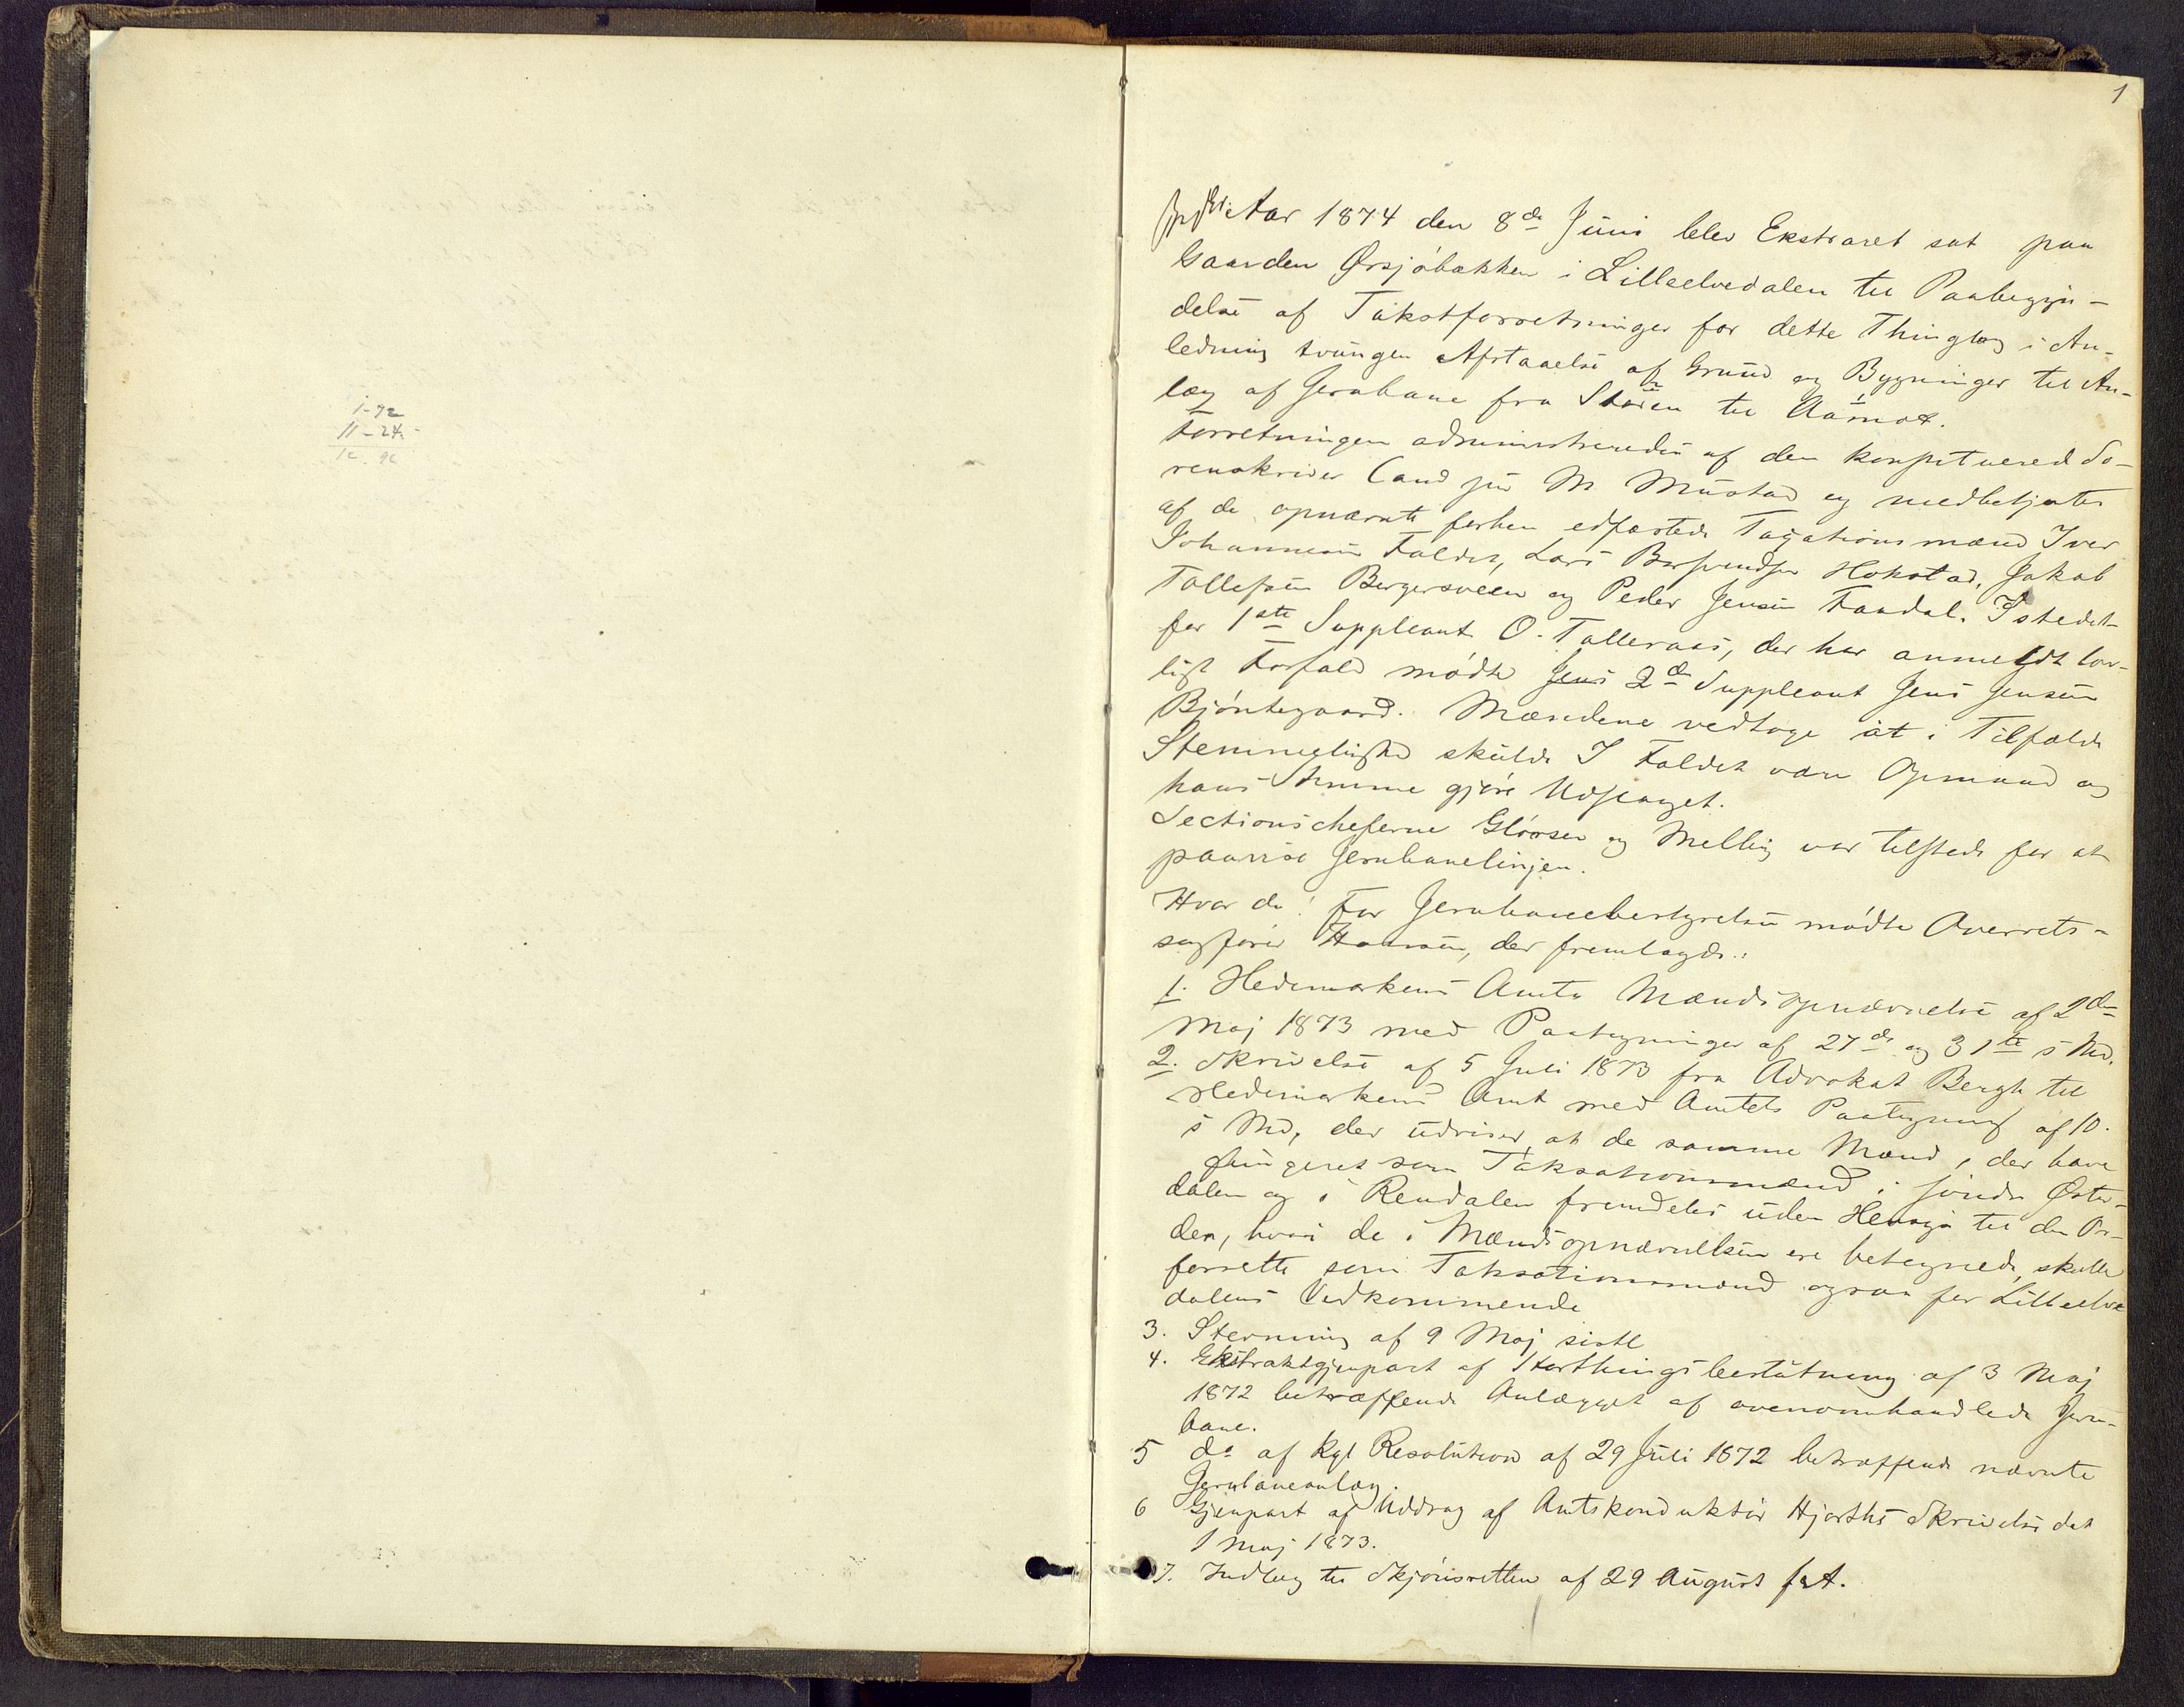 1-72
11-24
1
Aar 1874 den 8de Juni blev Ekstraret sat paa
Gaarden Ørsjøbakken i Lilleelvedalen til Paabegyn-
delse af Takstforretninger for dette Thinglag i An-
ledning tvungen Afstaaelse af Grund og Bygninger til An-
læg af Jernbane fra Støren til Aamot.
Forretningen administreredes af den konstituered So-
renskriver Cand jur M Mustad og medbetjentes
af de opnævnte forhen edfæstede Taxationsmænd Iver
Johannesen Faldet, Lars Hokstad, Jakob
Tollefsen Bergersveen og Peder Jensen Faadal. Istedet
for 1ste Suppleant O. Talleraas, der har anmeldt lov-
ligt Forfald mødte Jens 2den Suppleant Jens Jensen
Bjøntegaard. Mændene vedtoge at i Tilfælde
Stemmelighed skulde I Faldet være Opmand og
hans Stemme gjøre Udslaget.
Sectionscheferne Gløersen og Melbÿ var tilstede for at
paavise Jernbanelinjen.
Hvor da: For Jernbanebestyrelsen mødte Overrets-
sagfører Hansen, der fremlagde:
1. Hedemarkens Amts Mændsopnævnelse af 2den
Maj 1873 med Paategninger af 27de og 31te s Md.
2. Skrivelse af 5 Juli 1873 fra Advokat Bergh til
Hedemarkens Amt med Amtets Paategning af 10.
s Md, der udviser, at de samme Mænd, der have
fungeret som Taksationsmænd i søndre Øster-
dalen og i Rendalen fremdeles uden Hensyn til den Or-
den, hvori de i Mændsopnævnelsen ere betegnede, skulle
forrette som Taksationsmænd ogsaa for Lilleelve
dalens Vedkommende
3. Stevning af 9 Maj sistl
4. Ekstraktgjenpart af Storthingsbeslutning af 3 Maj
1872 betræffende Anlægget af ovenomhandlede Jern-
bane.
5 do af Kgl Resolution af 29 Juli 1872 betræffende nævnte
Jernbaneanlæg.
6 Gjenpart af Uddrag af Amtskonduktør Hjorths Skrivelse dat
1 Maj 1873.
7. Indlæg til Skjønsretten af 29 August f. A.